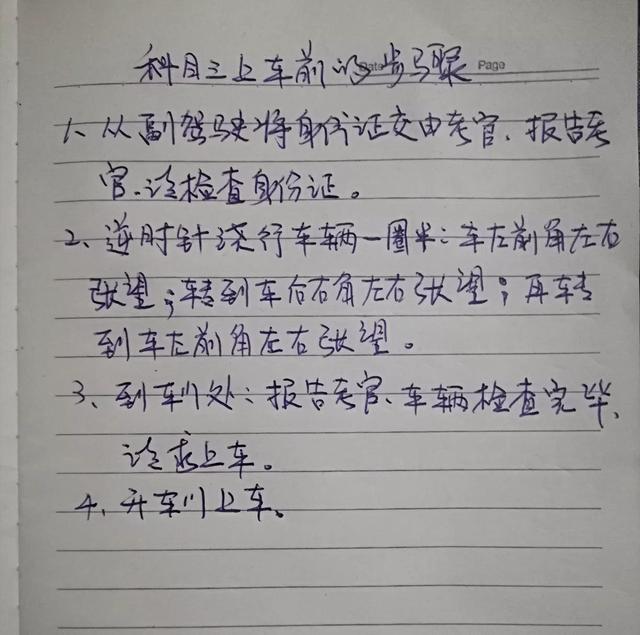 科目三上车前的步骤
Date Page
1、从副驾驶将身份证交由考官、报告考
官、请检查身份证。
2、逆时针绕行车辆一圈半：车左前角左右
张望；转到车右后角左右张望；再转
到车左前角左右张望。
3、到车门处：报告考官、车辆检查完毕、
请求上车。
4、开车门上车。